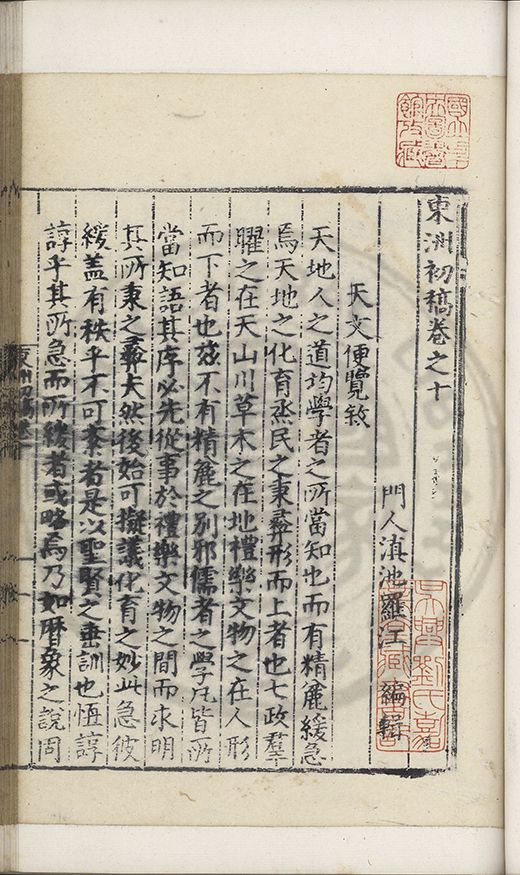 東洲初稿卷之十
門人滇池羅江編輯
天文便覽敘
天地人之道均學者之所當知也而有精麄緩急
焉天地之化育烝民之秉彛形而上者也七政羣
曜之在天山川草木之在地禮樂文物之在人形
而下者也玆不有精麄之別邪儒者之學凡皆所
當知語其序必先從事於禮樂文物之間而求明
其所秉之彛夫然後始可擬議化育之妙此急彼
緩盖有秩乎不可紊者是以聖賢之垂訓也恆諄
諄乎其所急而所緩者或略焉乃如曆象之說周
國立中央圖書館收藏
吳興劉氏嘉業堂藏書印